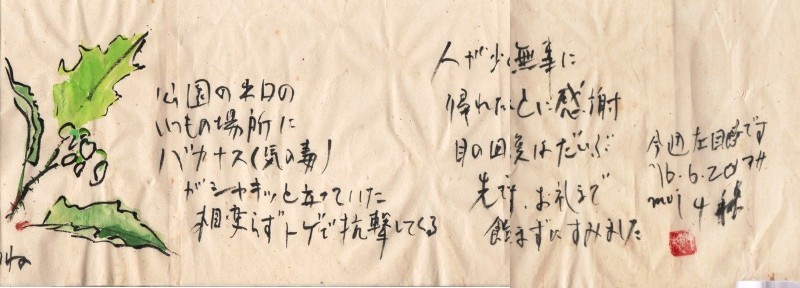 公園の
いつもの場所に
バカナス(気の毒)
がシャキッと立っていた
相変らずトゲで抗撃してくる
人が少く無事に
帰れたことに感謝
目の回復はだいぶ
先です、お礼まで
飲まずにすみました
左目 です
'16.6.20 アサ
moi 4